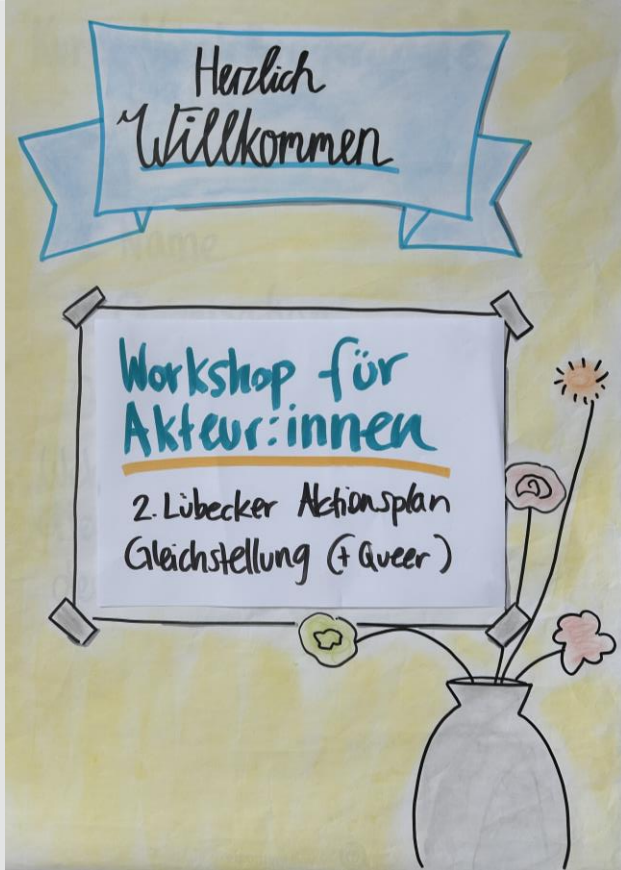 Herzlich
Willkommen
Workshop für
Akteur:innen
2. Lübecker Aktionsplan
Gleichstellung (+ Queer)